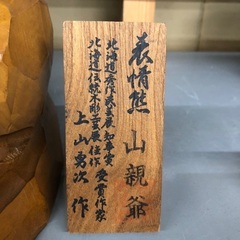 表情熊
山親爺
北海道秀作工芸展知事賞
北海道伝統木彫工芸展佳作
受賞作家
上山勇次作